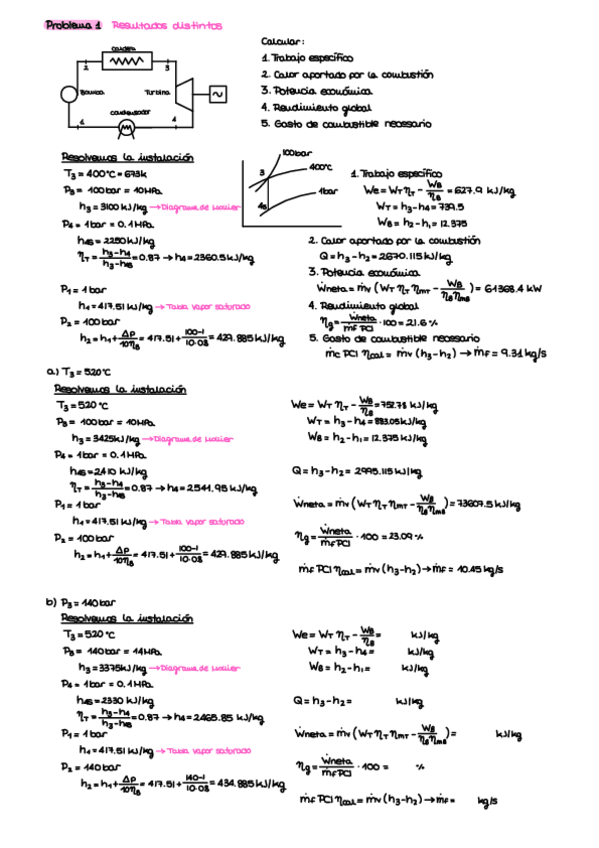 Problema 1 Resultados distintos
Calcular:
1. Trabajo específico
2. Calor aportado por la combustión
3. Potencia económica
4. Rendimiento global
5. Gasto de combustible necesario
caldera
2 3
Bomba Turbina
condensador
1 4
Resolvemos la instalación
T3 = 400°C = 673k
P3 = 100bar = 10MPa
h3 = 3100 kJ/kg → Diagrama de Mollier
P4 = 1bar = 0.1MPa
h4s = 2250 kJ/kg
ηT = h3-h4 / h3-h4s = 0.87 → h4 = 2360.5 kJ/kg
P1 = 1bar
h1 = 417.51 kJ/kg → Tabla vapor saturado
P2 = 100bar
h2 = h1 + Δp / 10ηB = 417.51 + 100-1 / 10·0.8 = 429.885 kJ/kg
100bar
400°C
1bar
3
4s
1. Trabajo específico
We = WT ηT - WB / ηB = 627.9 kJ/kg
WT = h3-h4 = 739.5
WB = h2-h1 = 12.375
2. Calor aportado por la combustión
Q = h3-h2 = 2670.115 kJ/kg
3. Potencia económica
Ẇneta = ṁv (WT ηT ηmT - WB / ηB ηmB) = 61368.4 kW
4. Rendimiento global
ηg = Ẇneta / ṁf PCI · 100 = 21.6 %
5. Gasto de combustible necesario
ṁc PCI ηcal = ṁv (h3-h2) → ṁf = 9.31 kg/s
a) T3 = 520°C
Resolvemos la instalación
T3 = 520°C
P3 = 100bar = 10MPa
h3 = 3425kJ/kg → Diagrama de Mollier
P4 = 1bar = 0.1MPa
h4s = 2410 kJ/kg
ηT = h3-h4 / h3-h4s = 0.87 → h4 = 2541.95 kJ/kg
P1 = 1bar
h1 = 417.51 kJ/kg → Tabla vapor saturado
P2 = 100bar
h2 = h1 + Δp / 10ηB = 417.51 + 100-1 / 10·0.8 = 429.885 kJ/kg
We = WT ηT - WB / ηB = 752.78 kJ/kg
WT = h3-h4 = 883.05 kJ/kg
WB = h2-h1 = 12.375 kJ/kg
Q = h3-h2 = 2995.115 kJ/kg
Ẇneta = ṁv (WT ηT ηmT - WB / ηB ηmB) = 73607.5 kJ/kg
ηg = Ẇneta / ṁf PCI · 100 = 23.09 %
ṁf PCI ηcal = ṁv (h3-h2) → ṁf = 10.45 kg/s
b) P3 = 140bar
Resolvemos la instalación
T3 = 520°C
P3 = 140bar = 14MPa
h3 = 3375kJ/kg → Diagrama de Mollier
P4 = 1bar = 0.1MPa
h4s = 2330 kJ/kg
ηT = h3-h4 / h3-h4s = 0.87 → h4 = 2465.85 kJ/kg
P1 = 1bar
h1 = 417.51 kJ/kg → Tabla vapor saturado
P2 = 140bar
h2 = h1 + Δp / 10ηB = 417.51 + 140-1 / 10·0.8 = 434.885 kJ/kg
We = WT ηT - WB / ηB = kJ/kg
WT = h3-h4 = kJ/kg
WB = h2-h1 = kJ/kg
Q = h3-h2 = kJ/kg
Ẇneta = ṁv (WT ηT ηmT - WB / ηB ηmB) = kJ/kg
ηg = Ẇneta / ṁf PCI · 100 = %
ṁf PCI ηcal = ṁv (h3-h2) → ṁf = kg/s